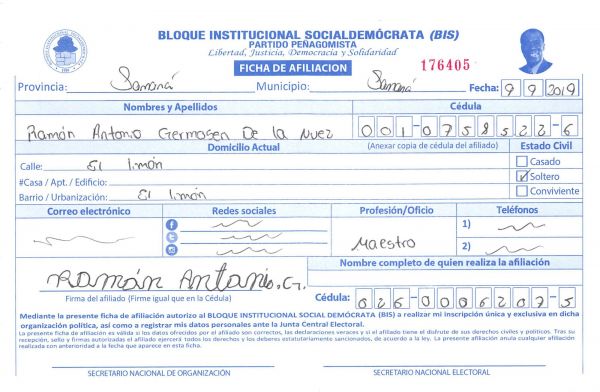 BLOQUE INSTITUCIONAL SOCIALDEMÓCRATA (BIS)
PARTIDO PEÑAGOMISTA
Libertad, Justicia, Democracia y Solidaridad
FICHA DE AFILIACION
176405
Provincia: Samaná Municipio: Samaná Fecha: 9 9 2019
Nombres y Apellidos Cédula
Ramón Antonio Germosen De la Nuez 001-0758522-6
Domicilio Actual (Anexar copia de cédula del afiliado) Estado Civil
Calle: El limón
Casado
#Casa / Apt. / Edificio:
Soltero
Barrio / Urbanización: El limón
Conviviente
Correo electrónico Redes sociales Profesión/Oficio Teléfonos
1)
Maestro
2)
Ramón Antonio. G. Nombre completo de quien realiza la afiliación
Firma del afiliado (Firme igual que en la Cédula) Cédula: 026-0006207-5
Mediante la presente ficha de afiliación autorizo al BLOQUE INSTITUCIONAL SOCIAL DEMÓCRATA (BIS) a realizar mi inscripción única y exclusiva en dicha
organización política, así como a registrar mis datos personales ante la Junta Central Electoral.
La presente ficha de afiliación es válida si los datos ofrecidos por el afiliado son correctos, las declaraciones veraces y si el afiliado tiene el disfrute de sus derechos civiles y políticos. Tras su
recepción, sello y firmas autorizadas el afiliado ejercerá todos los derechos y los deberes estatutariamente sancionados, de acuerdo a la ley. La presente afiliación anula cualquier afiliación
realizada con anterioridad a la fecha que aparece en esta ficha.
SECRETARIO NACIONAL DE ORGANIZACIÓN SECRETARIO NACIONAL ELECTORAL